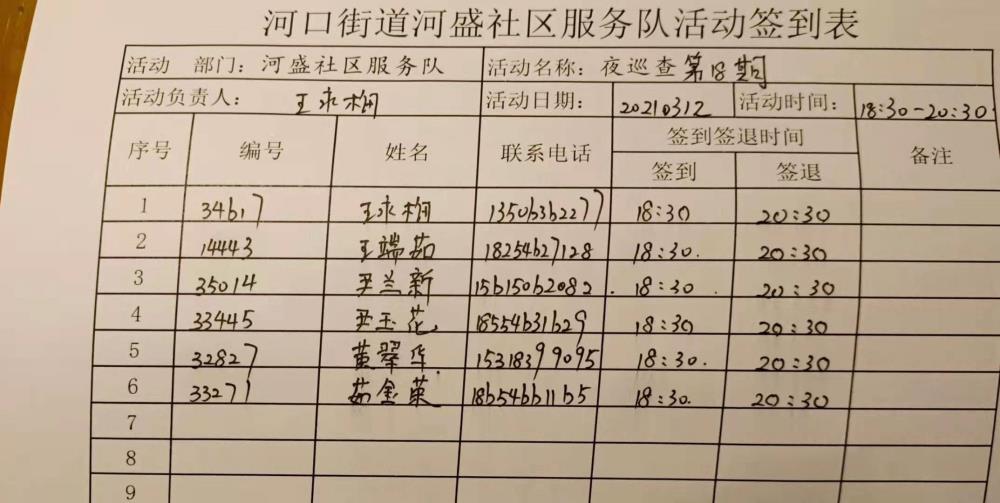 河口街道河盛社区服务队活动签到表
活动 部门：河盛社区服务队 活动名称：夜巡查第18期
活动负责人：王永栩 活动日期：20210312 活动时间：18:30-20:30
序号 编号 姓名 联系电话 签到签退时间 备注
签到 签退
1 34617 王永栩 13506362277 18:30 20:30
2 14443 王端茹 18254627128 18:30. 20:30
3 35014 尹兰新 15615062082 18:30 20:30
4 33445 尹玉花 18554631629 18:30 20:30
5 32827 黄翠华 15318399095 18:30. 20:30
6 33271 茹金英 18654661165 18:30. 20:30
7
8
9